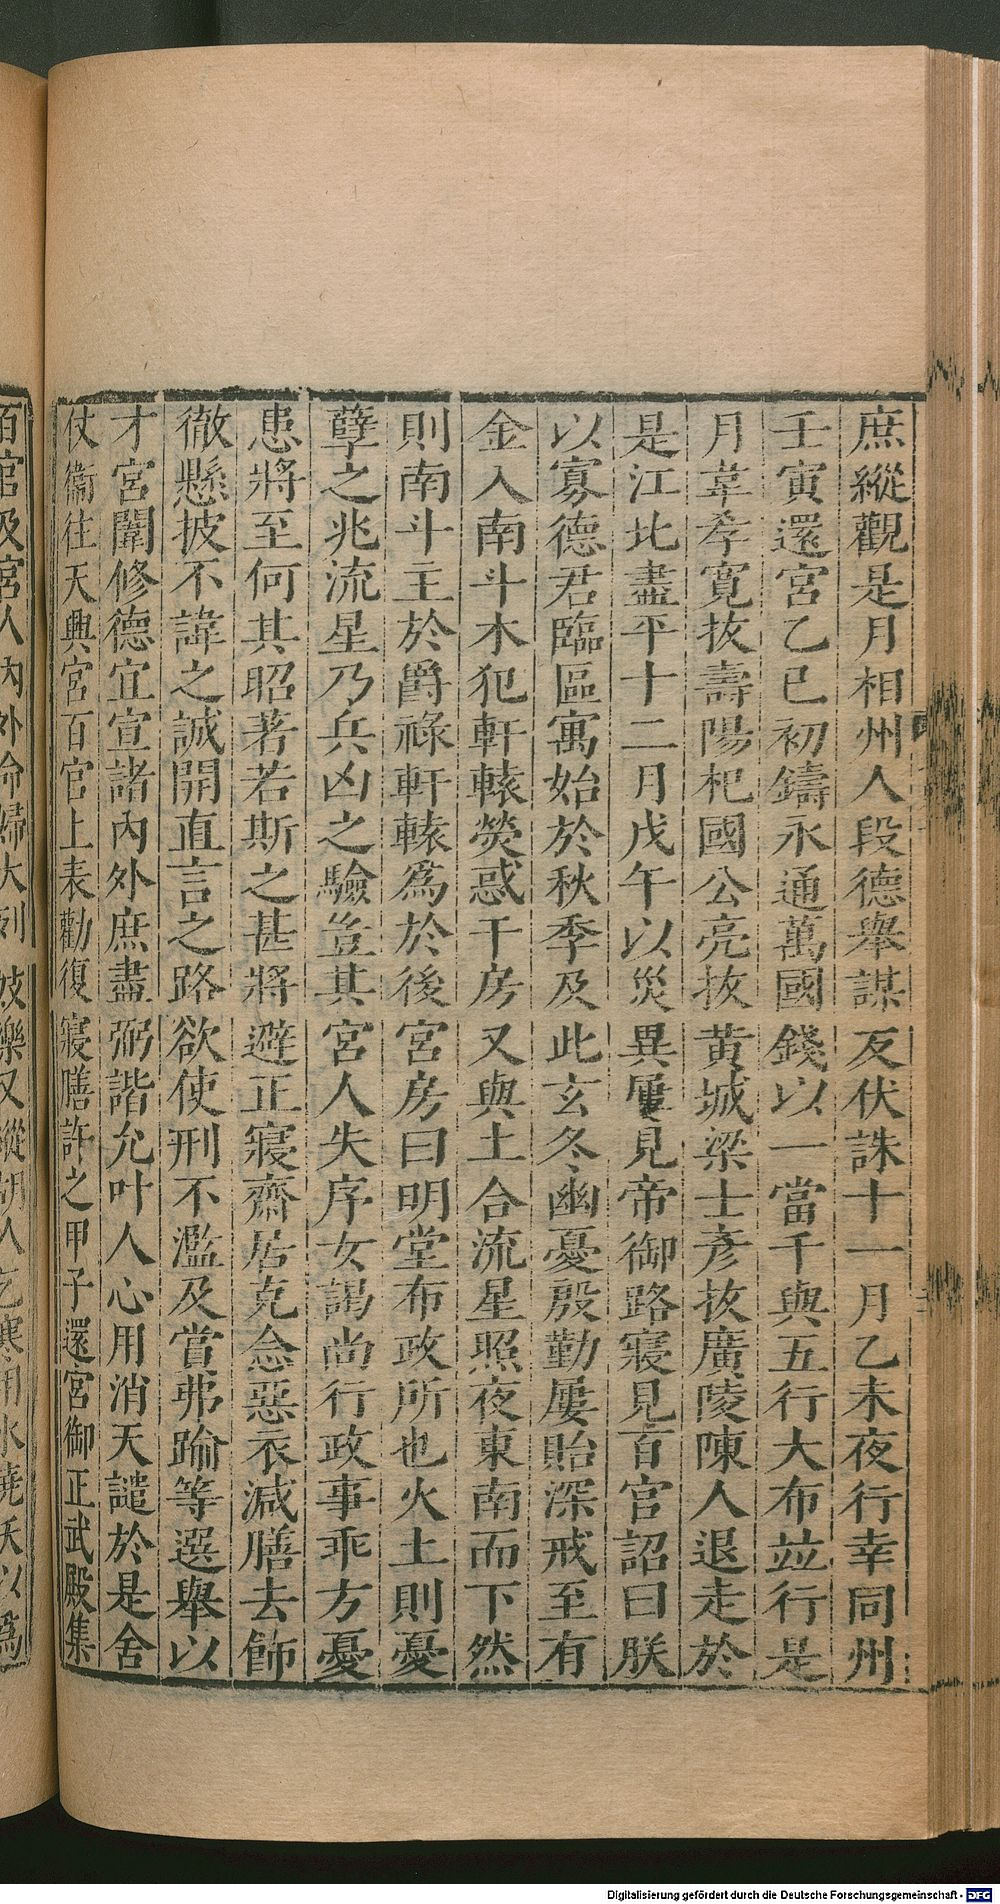 庶縱觀是月相州人段德舉謀反伏誅十一月乙未夜行幸同州
壬寅還宮乙巳初鑄永通萬國錢以一當千與五行大布竝行是
月韋孝寬拔壽陽杞國公亮拔黃城梁士彥拔廣陵陳人退走於
是江北盡平十二月戊午以災異屢見帝御路寢見百官詔曰朕
以寡德君臨區寓始於秋季及此玄冬幽憂殷勤屢貽深戒至有
金入南斗木犯軒轅熒惑干房又與土合流星照夜東南而下然
則南斗主於爵祿軒轅爲於後宮房曰明堂布政所也火土則憂
孽之兆流星乃兵凶之驗豈其宮人失序女謁尚行政事乖方憂
患將至何其昭著若斯之甚將避正寢齋居克念惡衣減膳去飾
徹懸披不諱之誠開直言之路欲使刑不濫及賞弗踰等選舉以
才宮闈修德宜宣諸內外庶盡弼諧允叶人心用消天譴於是舍
仗衞往天興宮百官上表勸復寢膳許之甲子還宮御正武殿集
百官及宮人內外命婦大列妓樂又縱胡人乞寒用水澆沃以爲
Digitalisierung gefördert durch die Deutsche Forschungsgemeinschaft - DFG